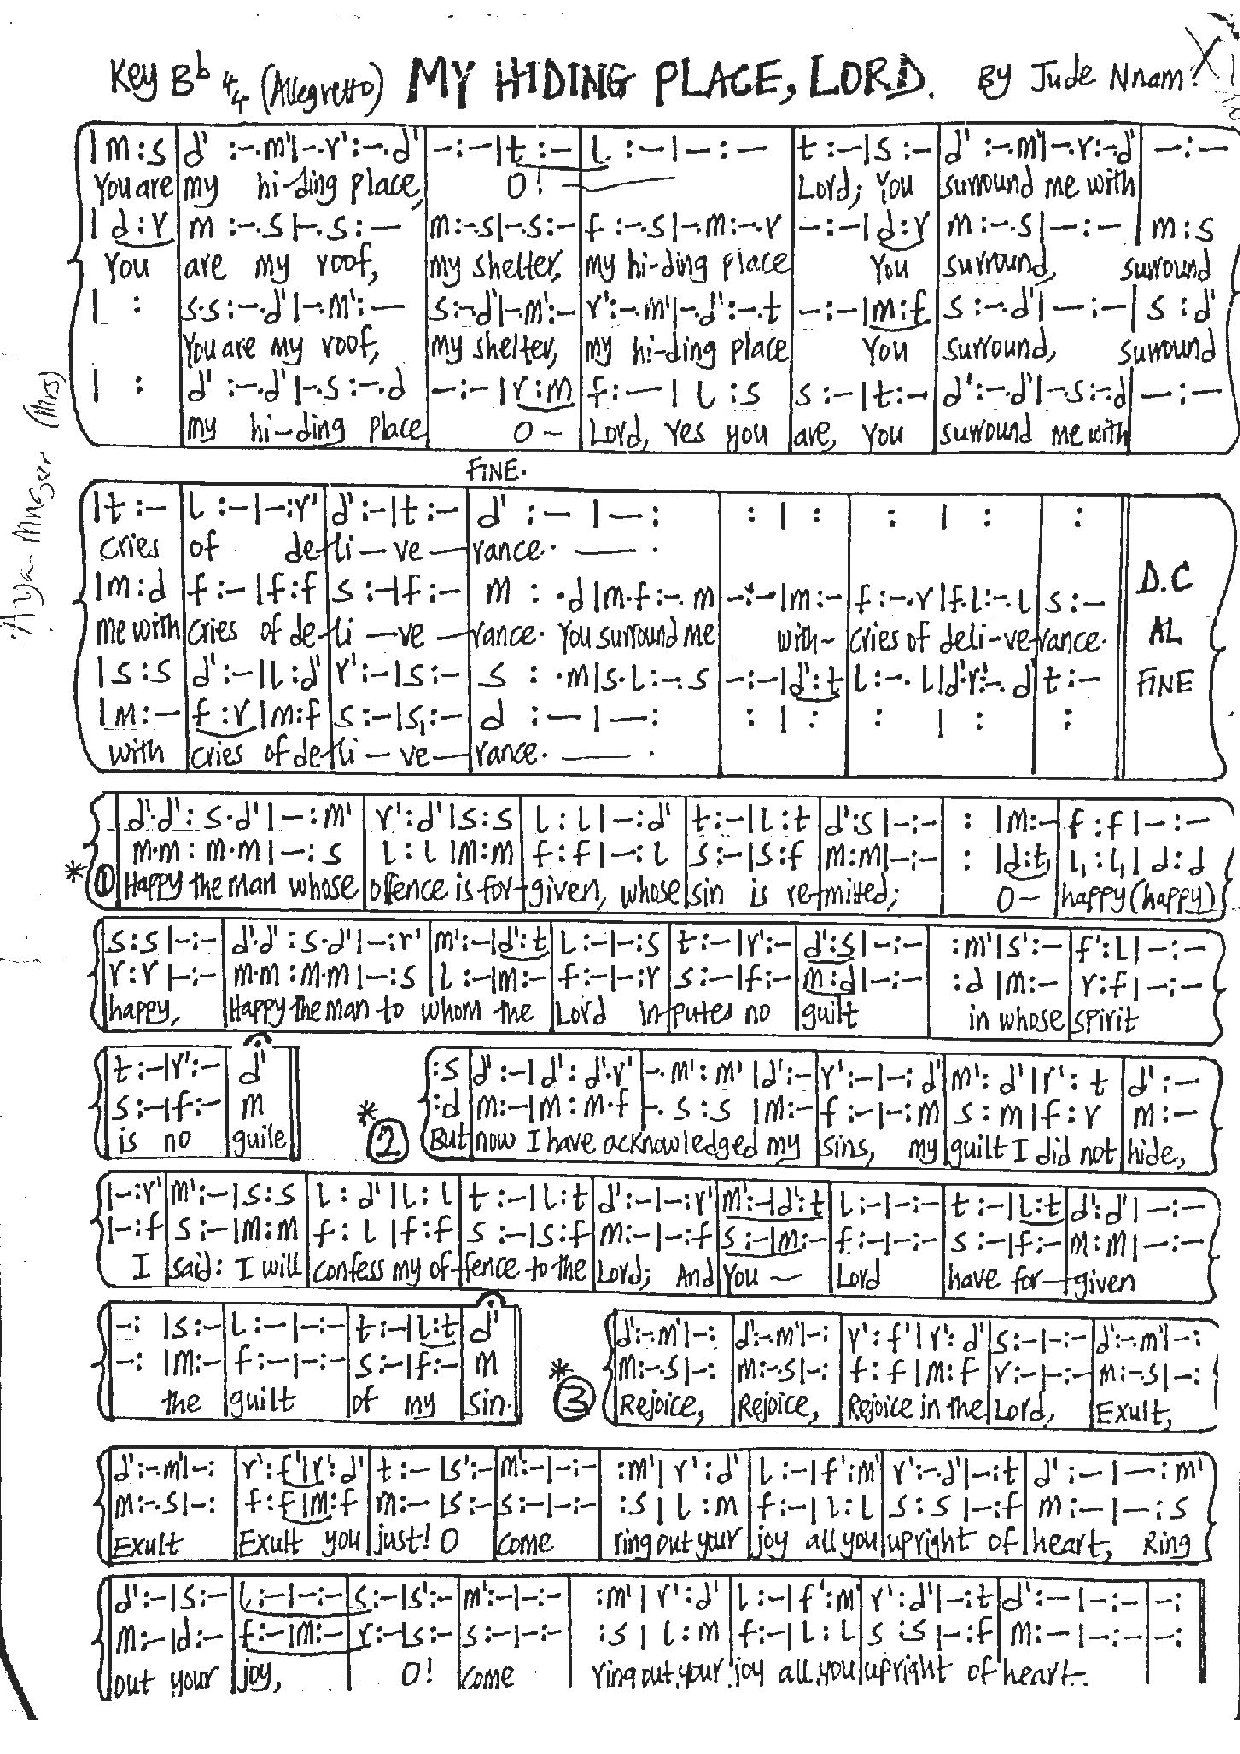 Key Bb 4/4 (Allegretto) MY HIDING PLACE, LORD. By Jude Nnam
|m:s | d' :-.m'|-.r':-.d' | -:-|t:- | l :-|-:- | t:-|s:- | d' :-.m'|-.r':-.d' | -:-
You are my hi-ding place, O! — Lord; You surround me with
|d:r | m :-.s|-.s:- | m:-.s|-.s:- | f:-.s|-.m:-.r | -:-|d:r | m:-.s|-:- | m:s
You are my roof, my shelter, my hi-ding place You surround, surround
| : | s.s:-.d'|-.m':- | s:-.d'|-.m':- | r':-.m'|-.d':-.t | -:-|m:f | s:-.d'|-:- | s:d'
You are my roof, my shelter, my hi-ding place You surround, surround
| : | d' :-.d'|-.s:-.d | -:-|r:m | f:-|l:s | s:-|t:- | d':-.d'|-.s:-.d | -:-
my hi-ding place O- Lord, Yes you are, You surround me with
FINE.
|t:- | l:-|-:r' | d':-|t:- | d' :-|-: | :|: | :|: | :
cries of de-li-ve-rance. — .
|m:d | f:-|f:f | s:-|f:- | m : .d|m.f:-.m | -:-|m:- | f:-.r|f.l:-.l | s:- D.C
me with cries of de-li-ve-rance. You surround me with- cries of deli-verance. AL
|s:s | d':-|l:d' | r':-|s:- | s : .m|s.l:-.s | -:-|d':t | l:-.l|d'.r':-.d' | t:- FINE
|m:- | f:r|m:f | s:-|s,:- | d :-|-: | :|: | :|: | :
with cries of de-li-ve-rance. — .
d'.d':s.d'|-:m' | r':d'|s:s | l:l|-:d' | t:-|l:t | d':s|-:- | :|m:- | f:f|-:-
m.m:m.m|-:s | l:l|m:m | f:f|-:l | s:-|s:f | m:m|-:- | :|d:t, | l,:l,|d:d
*① Happy the man whose offence is for-given, whose sin is re-mitted; O- happy (happy)
s:s|-:- | d'.d':s.d'|-:r' | m':-|d':t | l:-|-:s | t:-|r':- | d':s|-:- | :m'|s':- | f':l|-:-
r:r|-:- | m.m:m.m|-:s | l:-|m:- | f:-|-:r | s:-|f:- | m:d|-:- | :d|m:- | r:f|-:-
happy, Happy the man to whom the Lord imputes no guilt in whose spirit
t:-|r':- | d' :s | d':-|d':d'.r' | -.m':m'|d':- | r':-|-:d' | m':d'|r':t | d':-
s:-|f:- | m :d | m:-|m:m.f | -.s:s|m:- | f:-|-:m | s:m|f:r | m:-
is no guile *② But now I have acknowledged my sins, my guilt I did not hide,
|-:r' | m':-|s:s | l:d'|l:l | t:-|l:t | d':-|-:r' | m':-|d':t | l:-|-:- | t:-|l:t | d':d'|-:-
|-:f | s:-|m:m | f:l|f:f | s:-|s:f | m:-|-:f | s:-|m:- | f:-|-:- | s:-|f:- | m:m|-:-
I said: I will confess my of-fence to the Lord; And You — Lord have for-given
-:|s:- | l:-|-:- | t:-|l:t | d' d':-.m'|-: | d':-.m'|-: | r':f'|r':d' | s:-|-:- | d':-.m'|-:
-:|m:- | f:-|-:- | s:-|f:- | m m:-.s|-: | m:-.s|-: | f:f|m:f | r:-|-:- | m:-.s|-:
the guilt of my sin. *③ Rejoice, Rejoice, Rejoice in the Lord, Exult,
d':-.m'|-: | r':f'|r':d' | t:-|s':- | m':-|-:- | :m'|r':d' | l:-|f':m' | r':-.d'|-:t | d':-|-:m'
m:-.s|-: | f:f|m:f | m:-|s:- | s:-|-:- | :s|l:m | f:-|l:l | s:s|-:f | m:-|-:s
Exult Exult you just! O come ring out your joy all you upright of heart, Ring
d':-|s:- | l:-|-:- | s:-|s':- | m':-|-:- | :m'|r':d' | l:-|f':m' | r':d'|-:t | d':-|-:- | -:
m:-|d:- | f:-|m:- | r:-|s:- | s:-|-:- | :s|l:m | f:-|l:l | s:s|-:f | m:-|-:- | -:
out your joy, O! come ring out your joy all you upright of heart.